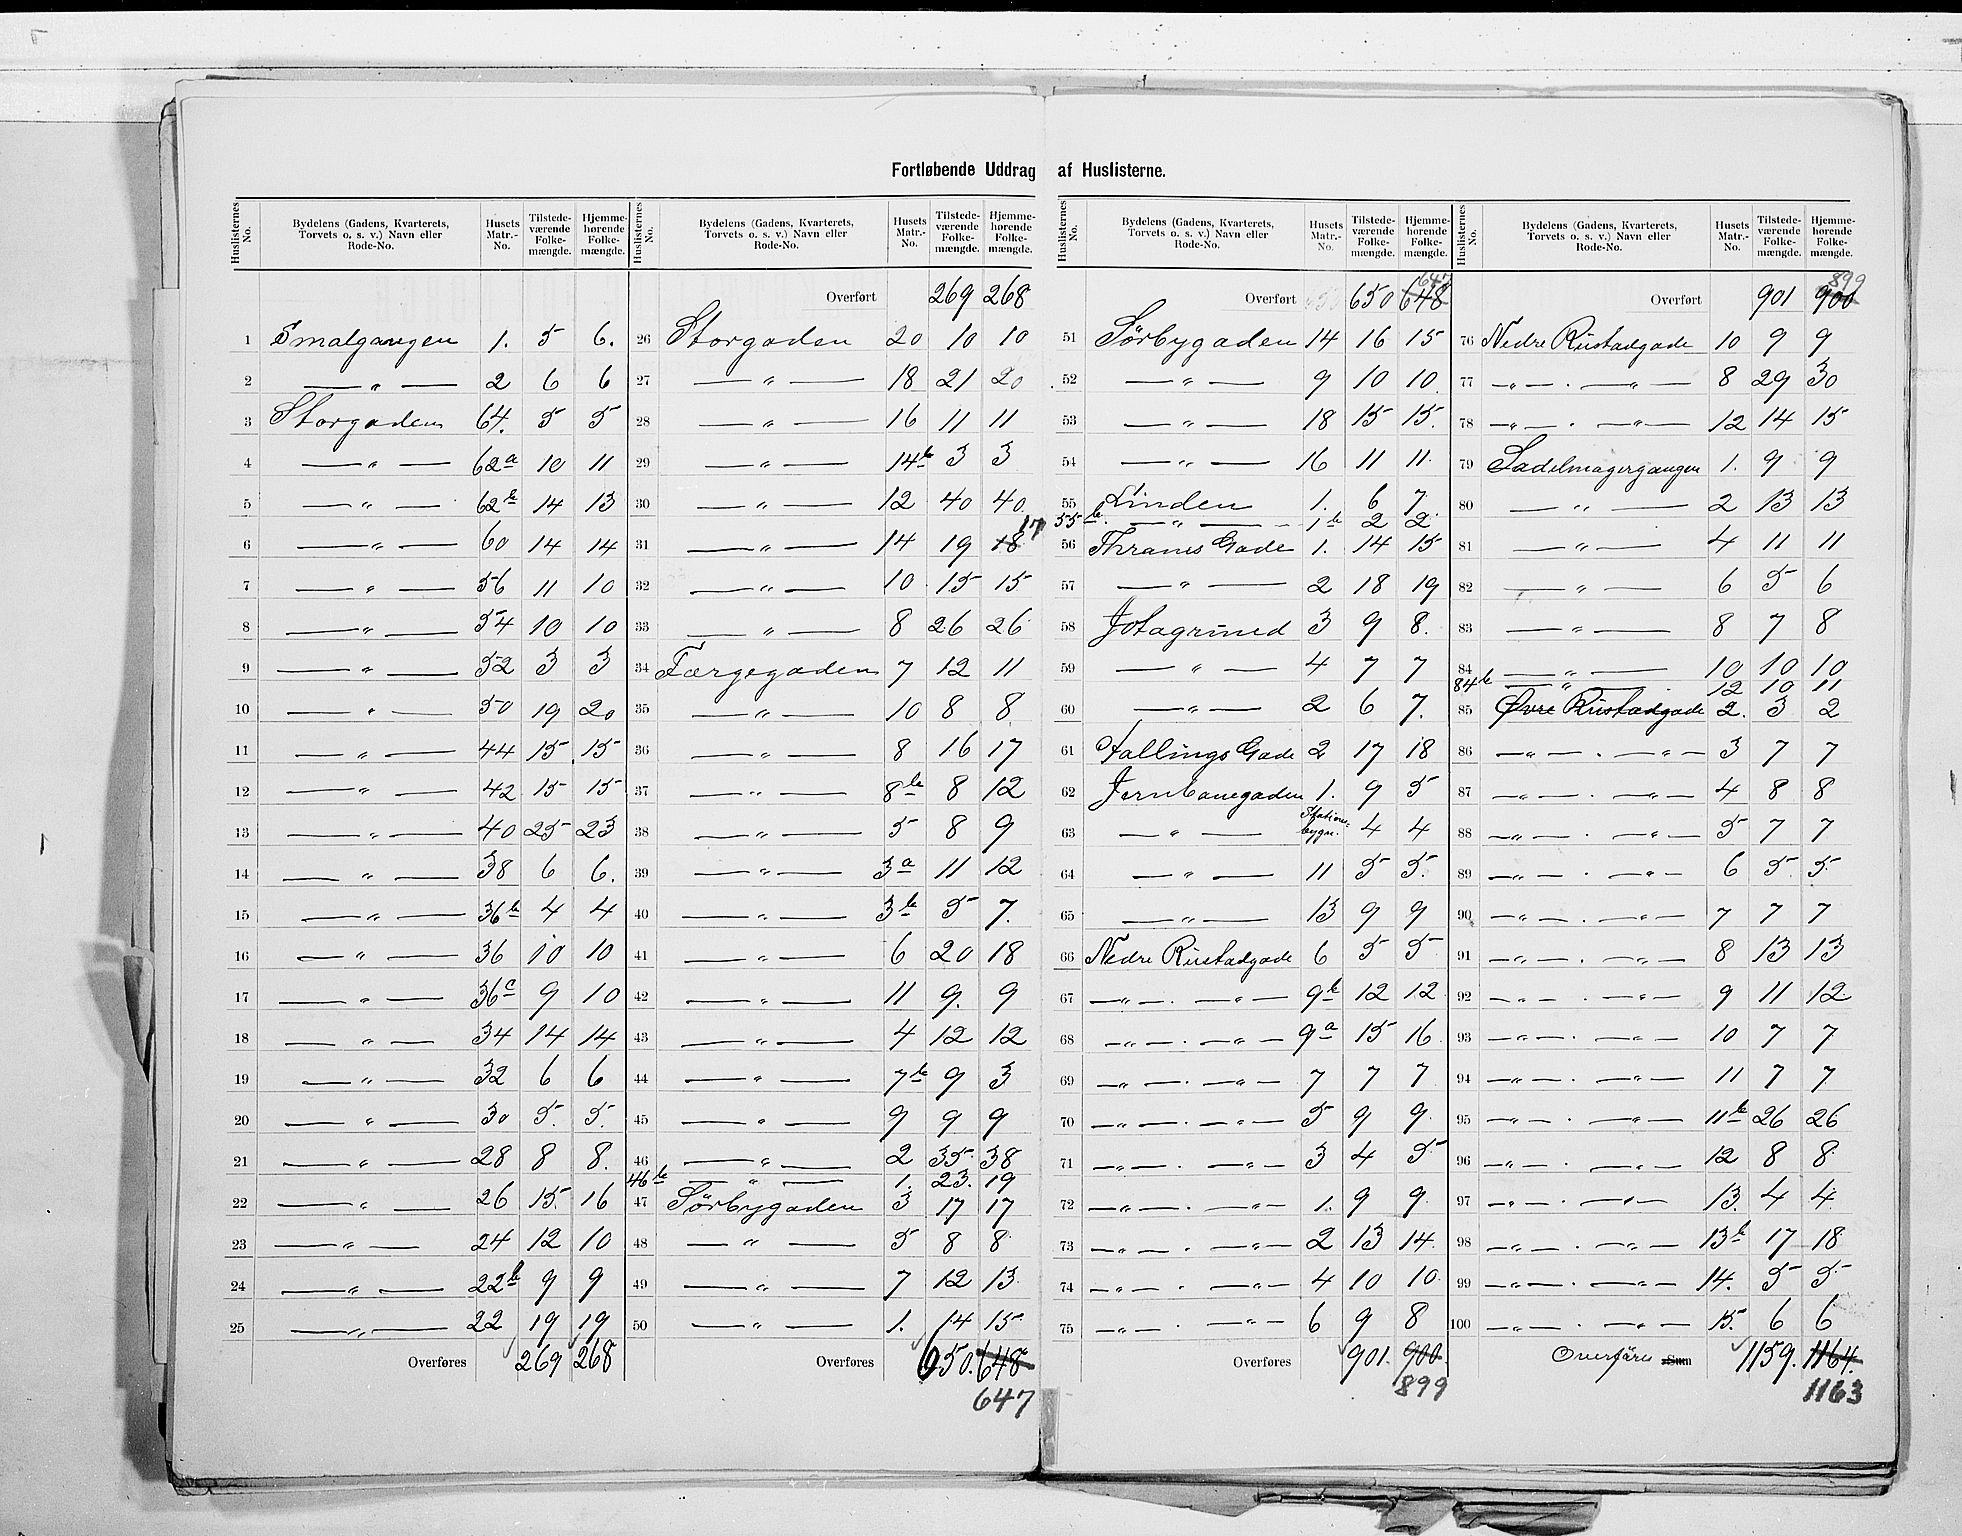 Fortløbende Uddrag af Huslisterne.
Huslisternes No. | Bydelens (Gadens, Kvarterets, Torvets o. s. v.) Navn eller Rode-No. | Husets Matr.-No. | Tilstedeværende Folkemængde. | Hjemmehørende Folkemængde.
1 Smalgangen 1. 5 6.
2 — " — 2 6 6
3 Storgaden 64. 5 5
4 — " — 62a 10 11
5 — " — 62b 14 13
6 — " — 60 14 14
7 — " — 56 11 10
8 — " — 54 10 10
9 — " — 52 3 3
10 — " — 50 19 20
11 — " — 44 15 15
12 — " — 42 15 15
13 — " — 40 25 23
14 — " — 38 6 6.
15 — " — 36b 4 4
16 — " — 36 10 10
17 — " — 36c 9 10
18 — " — 34 14 14
19 — " — 32 6 6
20 — " — 30 5. 5.
21 — " — 28 8 8.
22 — " — 26 15. 16
23 — " — 24 12 10
24 — " — 22b 9 9
25 — " — 22 19 19
Overføres 269 268
Huslisternes No. | Bydelens (Gadens, Kvarterets, Torvets o. s. v.) Navn eller Rode-No. | Husets Matr.-No. | Tilstedeværende Folkemængde. | Hjemmehørende Folkemængde.
Overført 269 268
26 Storgaden 20 10 10
27 — " — 18 21 20
28 — " — 16 11 11
29 — " — 14b 3 3
30 — " — 12 40 40
31 — " — 14 19 18 17
32 — " — 10 15 15
33 — " — 8 26 26
34 Færgegaden 7 12 11
35 — " — 10 8 8
36 — " — 8 16 17
37 — " — 8b 8 12
38 — " — 5 8 9
39 — " — 3a 11 12
40 — " — 3b 5 7.
41 — " — 6 20 18
42 — " — 11 9. 9
43 — " — 4 12 12
44 — " — 7b 9 3
45 — " — 9 9 9
46 — " — 2 35 38
46b — " — 1. 23. 19
47 Sörbygaden 3 17 17
48 — " — 5 8 8
49 — " — 7 12 13
50 — " — 1. 14 15
Overføres 650. 648
647
Huslisternes No. | Bydelens (Gadens, Kvarterets, Torvets o. s. v.) Navn eller Rode-No. | Husets Matr.-No. | Tilstedeværende Folkemængde. | Hjemmehørende Folkemængde.
Overført 650 648 647
51 Sörbygaden 14 16 15
52 — " — 9 10 10
53 — " — 18 15 15.
54 — " — 16 11 11
55 Linden 1. 6 7
55b — " — 1b 2 2
56 Thranes Gade 1. 14 15
57 — " — 2 18 19
58 Jotagrund 3 9 8.
59 — " — 4 7 7
60 — " — 2 6 7.
61 Fallings Gade 2 17 18
62 Jernbanegaden 1. 9 5
63 — " — Stationsbygn. 4 4
64 — " — 11 5 5.
65 — " — 13 9 9
66 Nedre Rustadgade 6 5 5
67 — " — . — " — 9b 12 12
68 — " — . — " — 9a 15 16
69 — " — . — " — 7 7 7
70 — " — . — " — 5 9 9
71 — " — . — " — 3 4 5
72 — " — . — " — 1. 9 9
73 — " — . — " — 2 13 14
74 — " — . — " — 4 10 10
75 — " — . — " — 6 9 8
Overføres 901. 900.
899
Huslisternes No. | Bydelens (Gadens, Kvarterets, Torvets o. s. v.) Navn eller Rode-No. | Husets Matr.-No. | Tilstedeværende Folkemængde. | Hjemmehørende Folkemængde.
Overført 901 900 899
76 Nedre Rustadgade 10 9 9
77 — " — . — " — 8 29 30
78 — " — . — " — 12 14 15
79 Sadelmagergangen 1. 9 9
80 — " — 2 13 13
81 — " — 4 11 11
82 — " — 6 5 6
83 — " — 8 7 8
84 — " — 10 10 10
84b — " — 12 10 11
85 Øvre Rustadgade 2. 3 2
86 — " — . — " — 3 7 7
87 — " — . — " — 4 8 8
88 — " — . — " — 5 7 7
89 — " — . — " — 6 5 5
90 — " — . — " — 7 7 7
91 — " — . — " — 8 13 13
92 — " — . — " — 9 11 12
93 — " — . — " — 10 7 7
94 — " — . — " — 11 7 7
95 — " — . — " — 11b 26 26
96 — " — . — " — 12 8 8
97 — " — . — " — 13. 4 4
98 — " — . — " — 13b 17 18
99 — " — . — " — 14. 5 5
100 — " — . — " — 15. 6 6
Overføres Sum 1159. 1164.
1163